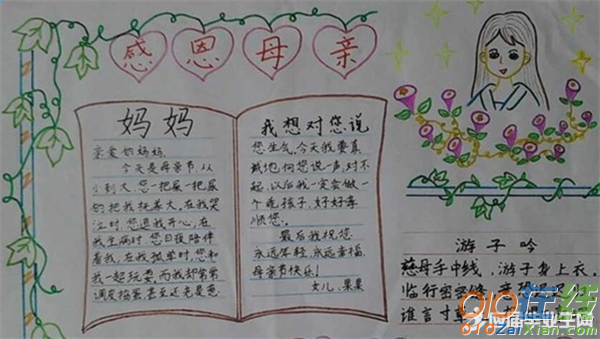 感恩母亲
妈妈
亲爱的妈妈,
今天是母亲节,从
小到大,您一把屎一把尿
的把我抚养大,在我哭
泣时,您逗我开心,在
我生病时,您日夜陪伴
着我,在我孤单时,您和
我一起玩耍,而我却常常
调皮捣蛋,甚至还老是惹
我想对您说
您生气,今天我要真
诚地向您说一声,对不
起,以后我一定会做一
个乖孩子,好好孝
顺您。
最后我祝您
永远年轻,永远幸福,
母亲节快乐!
女儿:果果
游子吟
慈母手中线,游子身上衣。
临行密密缝,意恐
谁言寸草
910在线
910zaixian.com
应届毕业生网